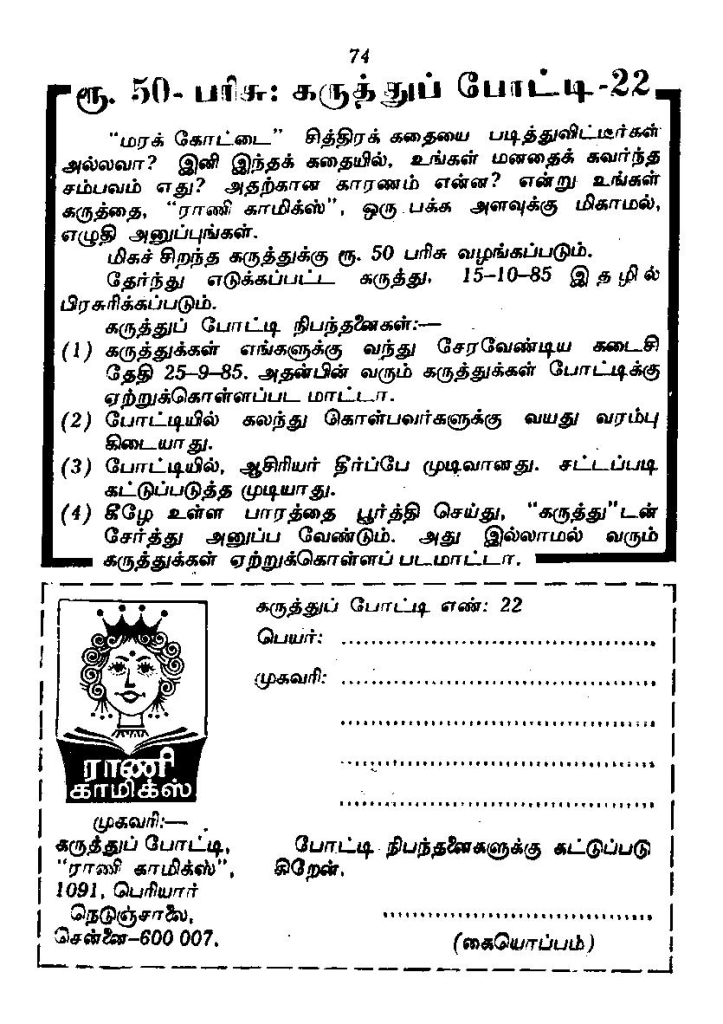 74
ரூ. 50- பரிசு: கருத்துப் போட்டி -22
"மரக் கோட்டை" சித்திரக் கதையை படித்துவிட்டீர்கள்
அல்லவா? இனி இந்தக் கதையில், உங்கள் மனதைக் கவர்ந்த
சம்பவம் எது? அதற்கான காரணம் என்ன? என்று உங்கள்
கருத்தை, "ராணி காமிக்ஸ்", ஒரு பக்க அளவுக்கு மிகாமல்,
எழுதி அனுப்புங்கள்.
மிகச் சிறந்த கருத்துக்கு ரூ. 50 பரிசு வழங்கப்படும்.
தேர்ந்து எடுக்கப்பட்ட கருத்து, 15–10–85 இதழில்
பிரசுரிக்கப்படும்.
கருத்துப் போட்டி நிபந்தனைகள்:—
(1) கருத்துக்கள் எங்களுக்கு வந்து சேரவேண்டிய கடைசி
தேதி 25–9–85. அதன்பின் வரும் கருத்துக்கள் போட்டிக்கு
ஏற்றுக்கொள்ளப்பட மாட்டா.
(2) போட்டியில் கலந்து கொள்பவர்களுக்கு வயது வரம்பு
கிடையாது.
(3) போட்டியில், ஆசிரியர் தீர்ப்பே முடிவானது. சட்டப்படி
கட்டுப்படுத்த முடியாது.
(4) கீழே உள்ள பாரத்தை பூர்த்தி செய்து, "கருத்து"டன்
சேர்த்து அனுப்ப வேண்டும். அது இல்லாமல் வரும்
கருத்துக்கள் ஏற்றுக்கொள்ளப் படமாட்டா.
கருத்துப் போட்டி எண்: 22
பெயர்: ........................................
முகவரி: ........................................
........................................
........................................
........................................
ராணி
காமிக்ஸ்
முகவரி:—
கருத்துப் போட்டி,
"ராணி காமிக்ஸ்",
1091, பெரியார்
நெடுஞ்சாலை,
சென்னை–600 007.
போட்டி நிபந்தனைகளுக்கு கட்டுப்படு
கிறேன்.
........................................
(கையொப்பம்)